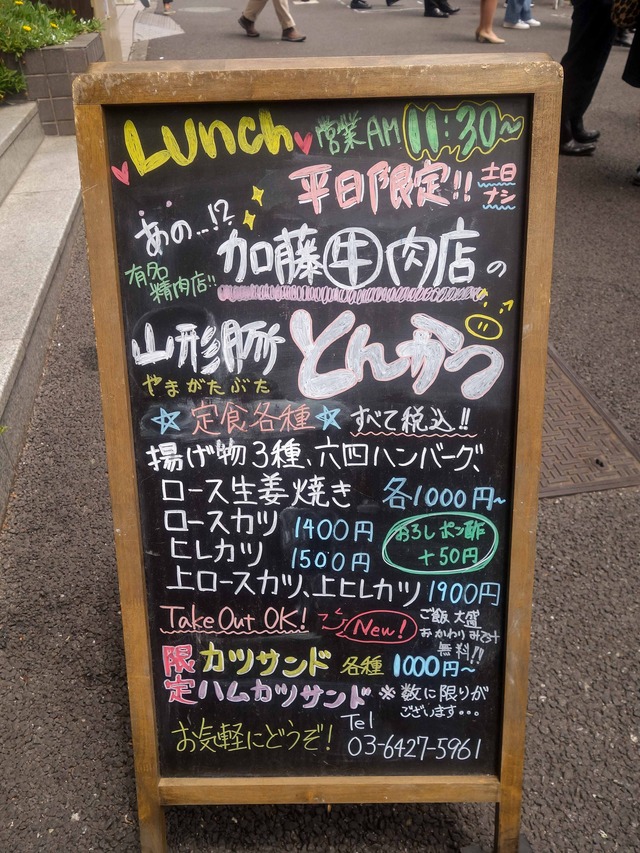 Lunch 営業AM 11:30~
平日限定!! 土日ナシ
あの…!?
有名精肉店!!
加藤牛肉店の
山形豚 とんかつ
やまがたぶた
☆定食各種☆ すべて税込!!
揚げ物3種、六四ハンバーグ、
ロース生姜焼き 各1000円~
ロースカツ 1400円
ヒレカツ 1500円
おろしポン酢
+50円
上ロースカツ、上ヒレカツ 1900円
Take Out OK! New!
ご飯 大盛
おかわりみそ汁
無料!!
限定 カツサンド 各種 1000円~
ハムカツサンド ※数に限りが
ございます…
お気軽にどうぞ! Tel
03-6427-5961